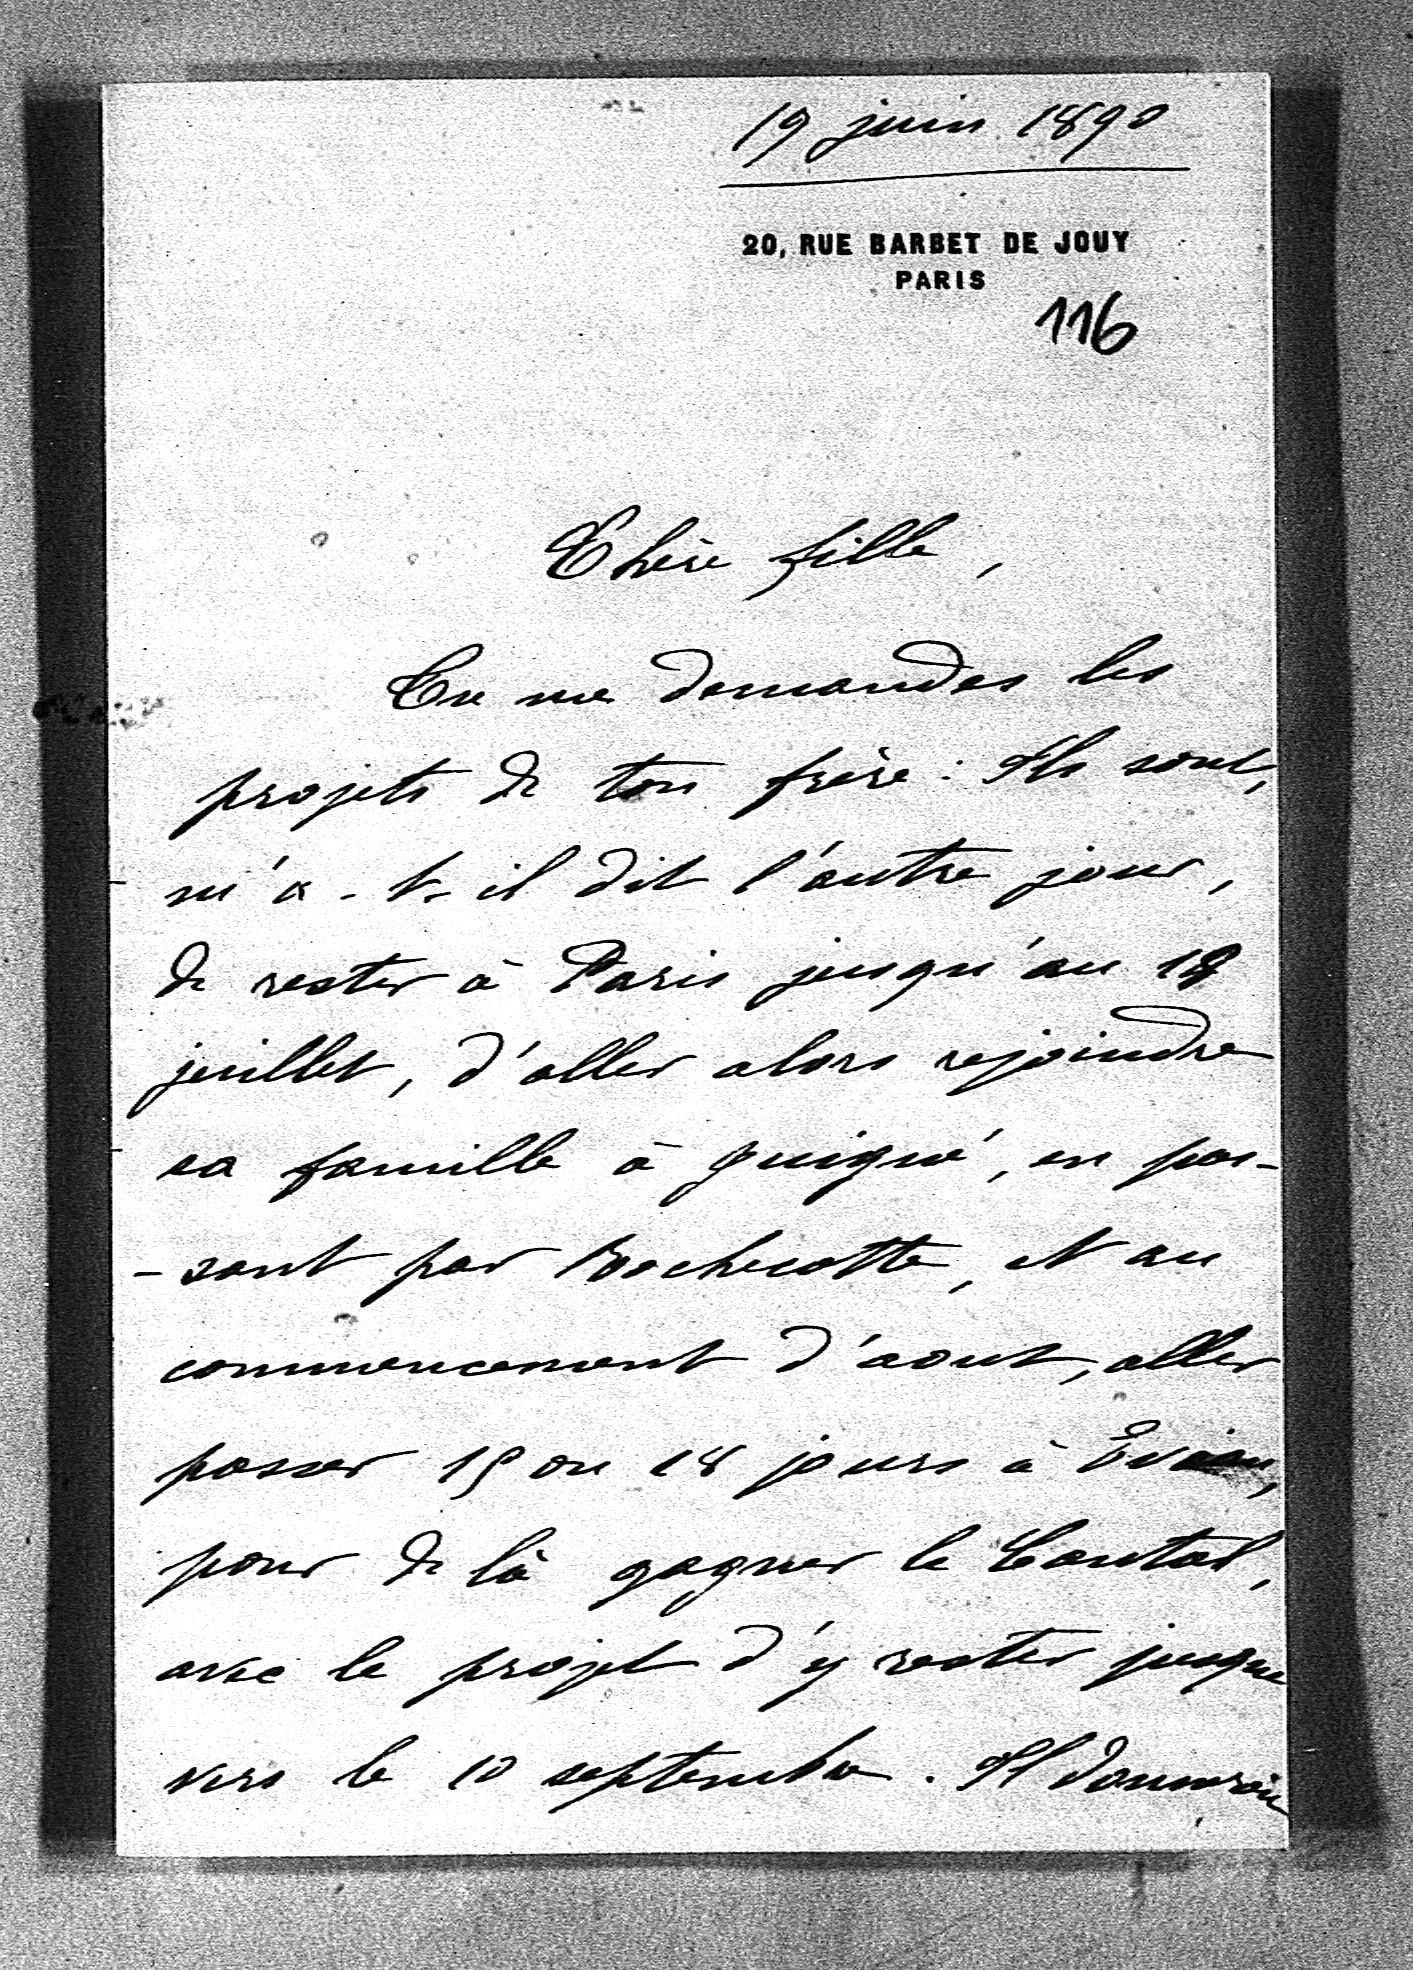 19 juin 1890
20, RUE BARBET DE JOUY
PARIS
116
Chère fille,
Tu me demandes les
projets de ton frère : Ils sont,
m'a-t-il dit l'autre jour,
de rester à Paris jusqu'au 18
juillet, d'aller alors rejoindre
sa famille à Juigné, en pas-
-sant par Rochecotte, et au
commencement d'aout, aller
passer 15 ou 18 jours à Evian,
pour de là gagner le Cantal,
avec le projet d'y rester jusque
vers le 10 septembre. Il donnerait